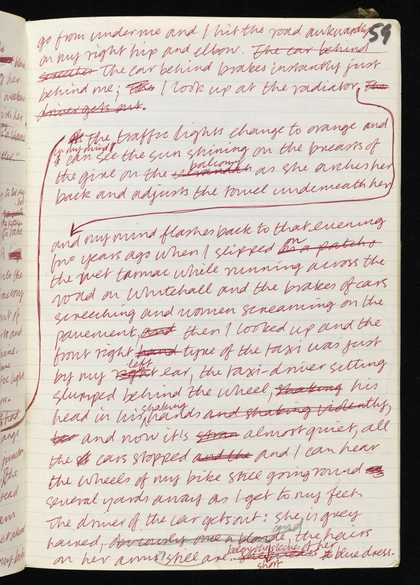 59
go from under me and I hit the road awkwardly
on my right hip and elbow. The car behind
The car behind brakes instantly just
behind me; The I look up at the radiator, The
driver gets out.
The traffic lights change to orange and
in my mind
I can see the sun shining on the breasts of
balcony
the girl on the verandah as she arches her
back and adjusts the towel underneath her
and my mind flashes back to that evening
two years ago when I slipped on in a patch of
the wet tarmac while running across the
road on Whitehall and the brakes of cars
screeching and women screaming on the
pavement, and then I looked up and the
front right hand tyre of the taxi was just
left
by my right ear, the taxi-driver sitting
slumped behind the wheel, shaking his
shaking
head in his hands and shaking violently,
and now it's almost quiet, all
the cars stopped and the and I can hear
the wheels of my bike still going round
several yards away as I get to my feet.
The driver of the car gets out: she is grey
haired, obviously once a blonde, and the hairs
on her arms still are
short blue dress-